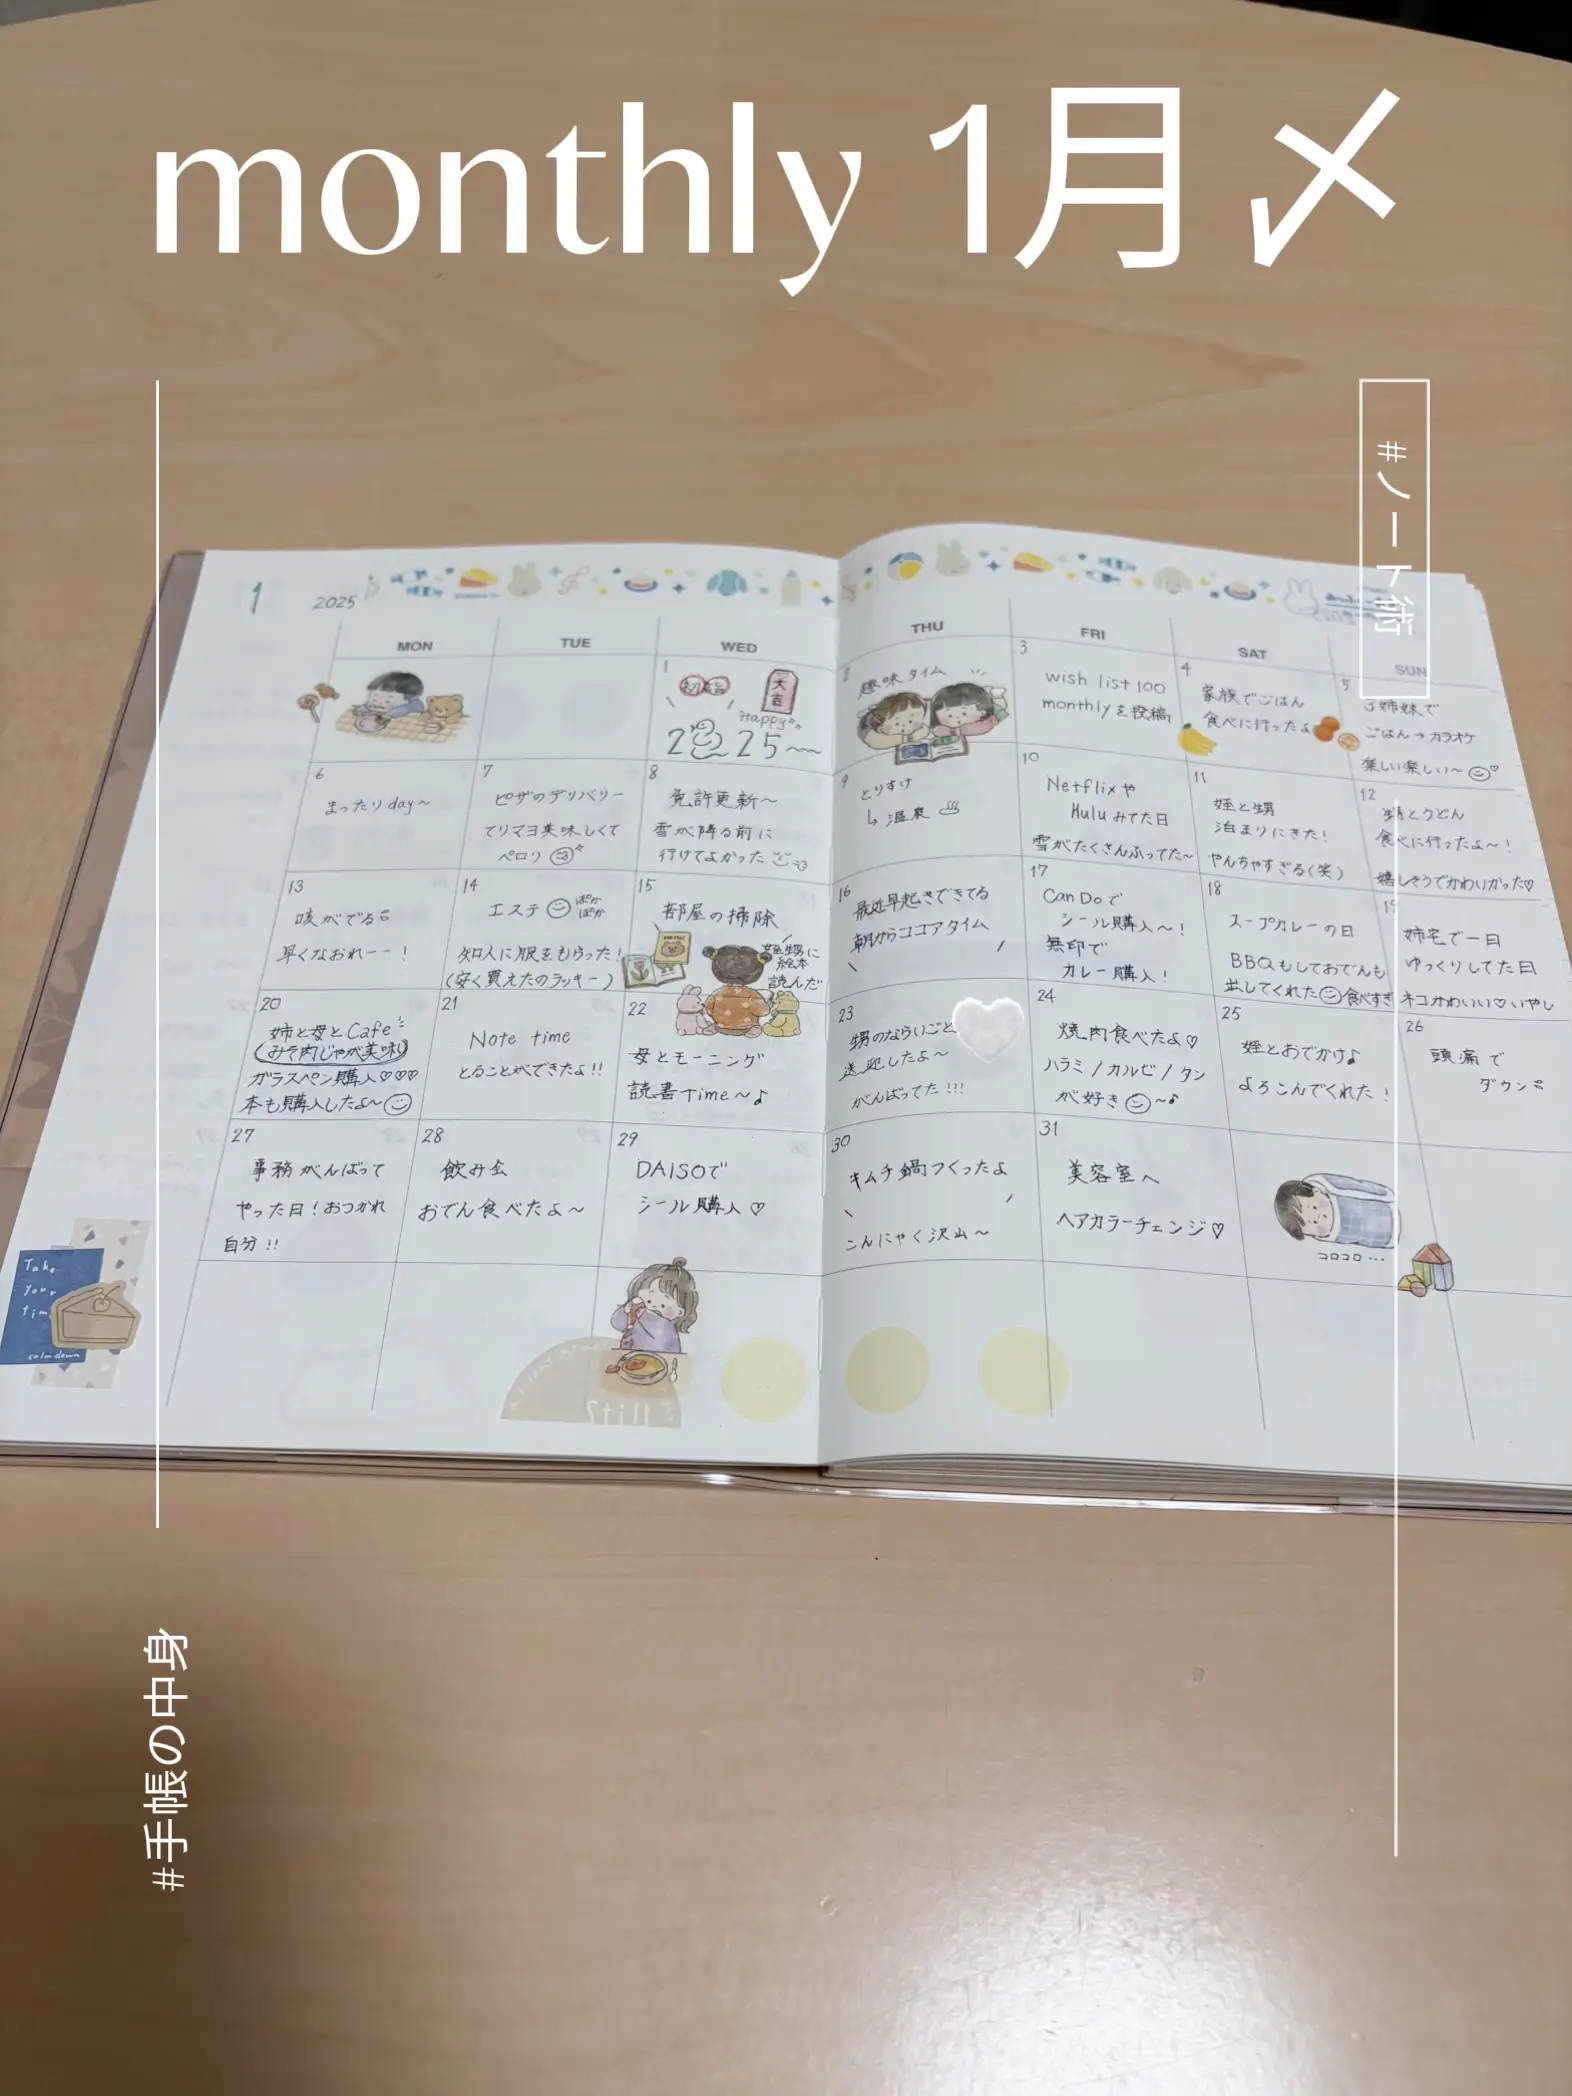 monthly 1月〆
#ノート術
1
2025
MON
TUE
WED
THU
FRI
SAT
SUN
1
初詣
大吉
Happy
2025
2
趣味タイム
3
wish list 100
monthlyを投稿
4
家族でごはん
食べに行ったよ
5
3姉妹で
ごはん→カラオケ
楽しい楽しい〜
6
まったりday〜
7
ピザのデリバリー
テリマヨ美味しくて
ペロリ
8
免許更新〜
雪が降る前に
行けてよかった
9
とりすけ
↳温泉
10
Netflixや
Huluみてた日
雪がたくさんふってた~
11
姪と甥
泊まりにきた!
やんちゃすぎる(笑)
12
とうどん
食べに行ったよ~!
嬉しそうでかわいかった♡
13
咳がでる
早くなおれーー!
14
エステ
ぽかぽか
知人に服をもらった!
(安く買えたのラッキー)
15
部屋の掃除
姪甥に
絵本
読んだ
16
最近早起きできてる
朝からココアタイム
17
CanDoで
シール購入〜!
無印で
カレー購入!
18
スープカレーの日
BBQもしておでんも
出してくれた 食べすぎ
19
姉宅で一日
ゆっくりしてた日
ネコかわいい♡いやし
20
姉と母とCafe
(みそ肉じゃが美味し)
ガラスペン購入♡♡♡
本も購入したよ~
21
Note time
とることができたよ!!
22
母とモーニング
読書Time〜♪
23
甥のならいごと
送迎したよ〜
がんばってた!!!
24
焼肉食べたよ♡
ハラミ/カルビ/タン
が好き ~♪
25
姪とおでかけ♪
よろこんでくれた!
26
頭痛で
ダウン
27
事務がんばって
やった日!おつかれ
自分!!
28
飲み会
おでん食べたよ〜
29
DAISOで
シール購入♡
30
キムチ鍋つくったよ
こんにゃく沢山〜
31
美容室へ
ヘアカラーチェンジ♡
コロコロ…
Take
your
tim
calm down
#手帳の中身